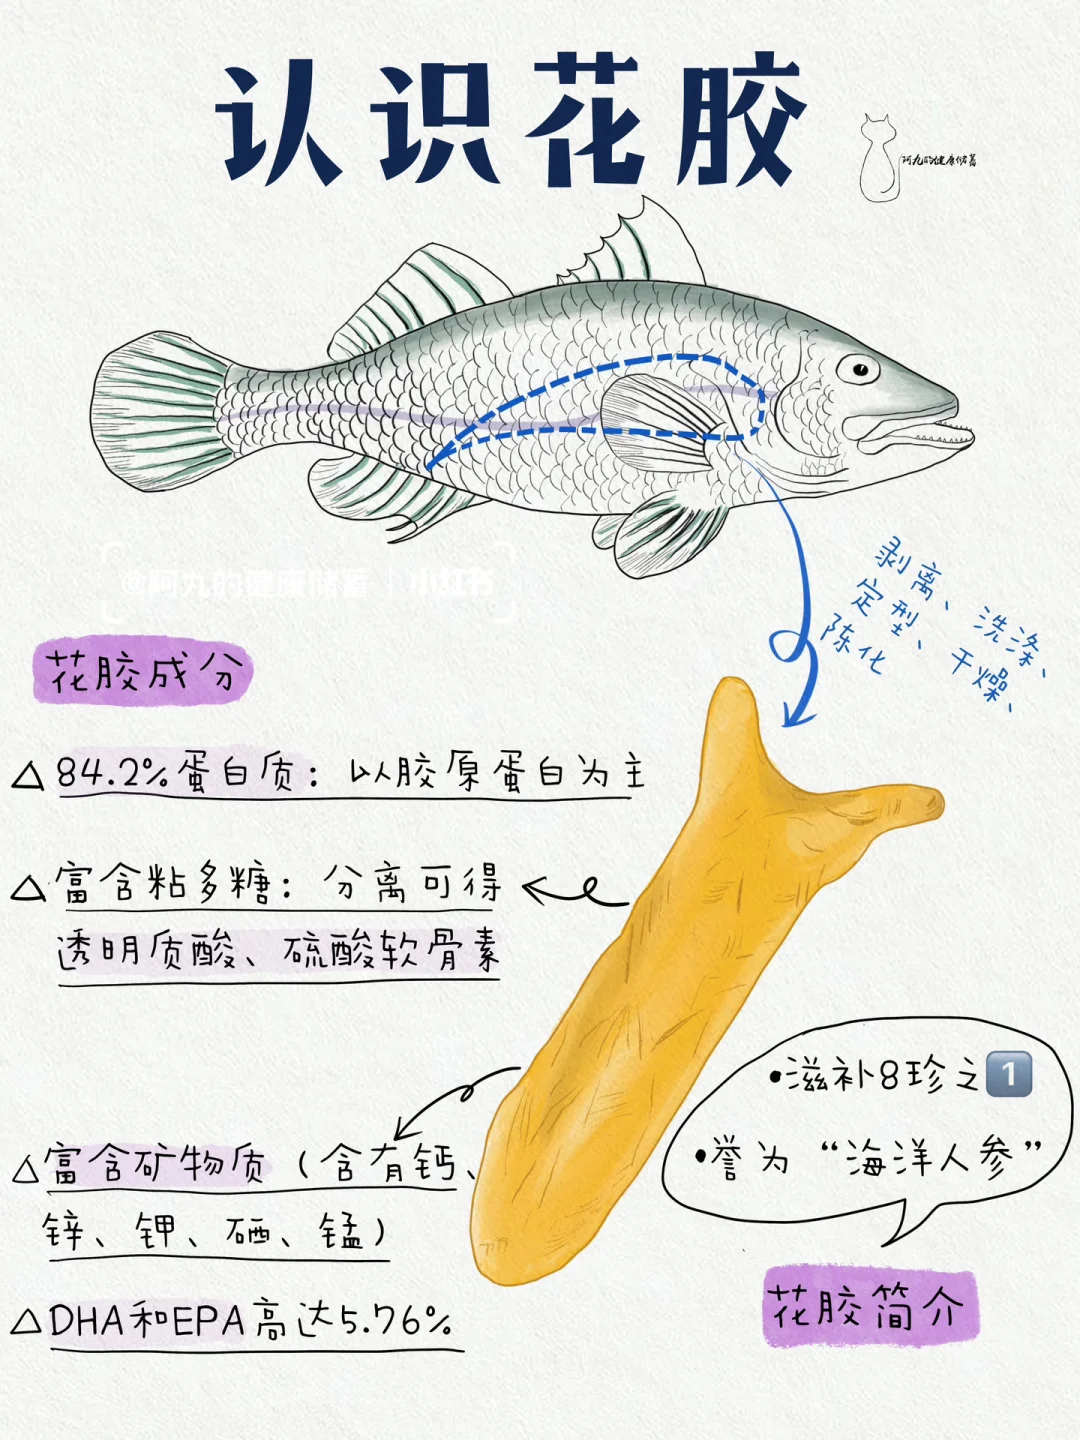 认识花胶
阿九的健康储蓄
剥离、洗涤、
定型、干燥、
陈化
花胶成分
△84.2%蛋白质：以胶原蛋白为主
△富含粘多糖：分离可得
透明质酸、硫酸软骨素
△富含矿物质（含有钙、
锌、钾、硒、锰）
△DHA和EPA高达5.76%
•滋补8珍之1
•誉为“海洋人参”
花胶简介